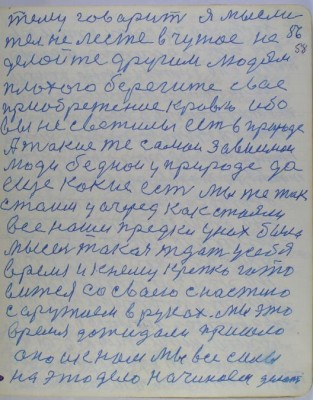 тему говарит я мысли
тел не лесте в чужое не 86
делойте другим людям 58
плохого берегите свае
приобретение кравь ибо
вы не светилы есть в природе
А такие те самаи зависимаи
люди бедной у природе да
еще какие есть мы же так
стаим у очеред как стаяли
все наши предки у них была
мысел такая ждать у себя
время и к нему крепко гато
вится со сваею снастию
с аружием в руках. мы это
время дожидали пришло
оно и к нам мы все силы
на это дело начинаем